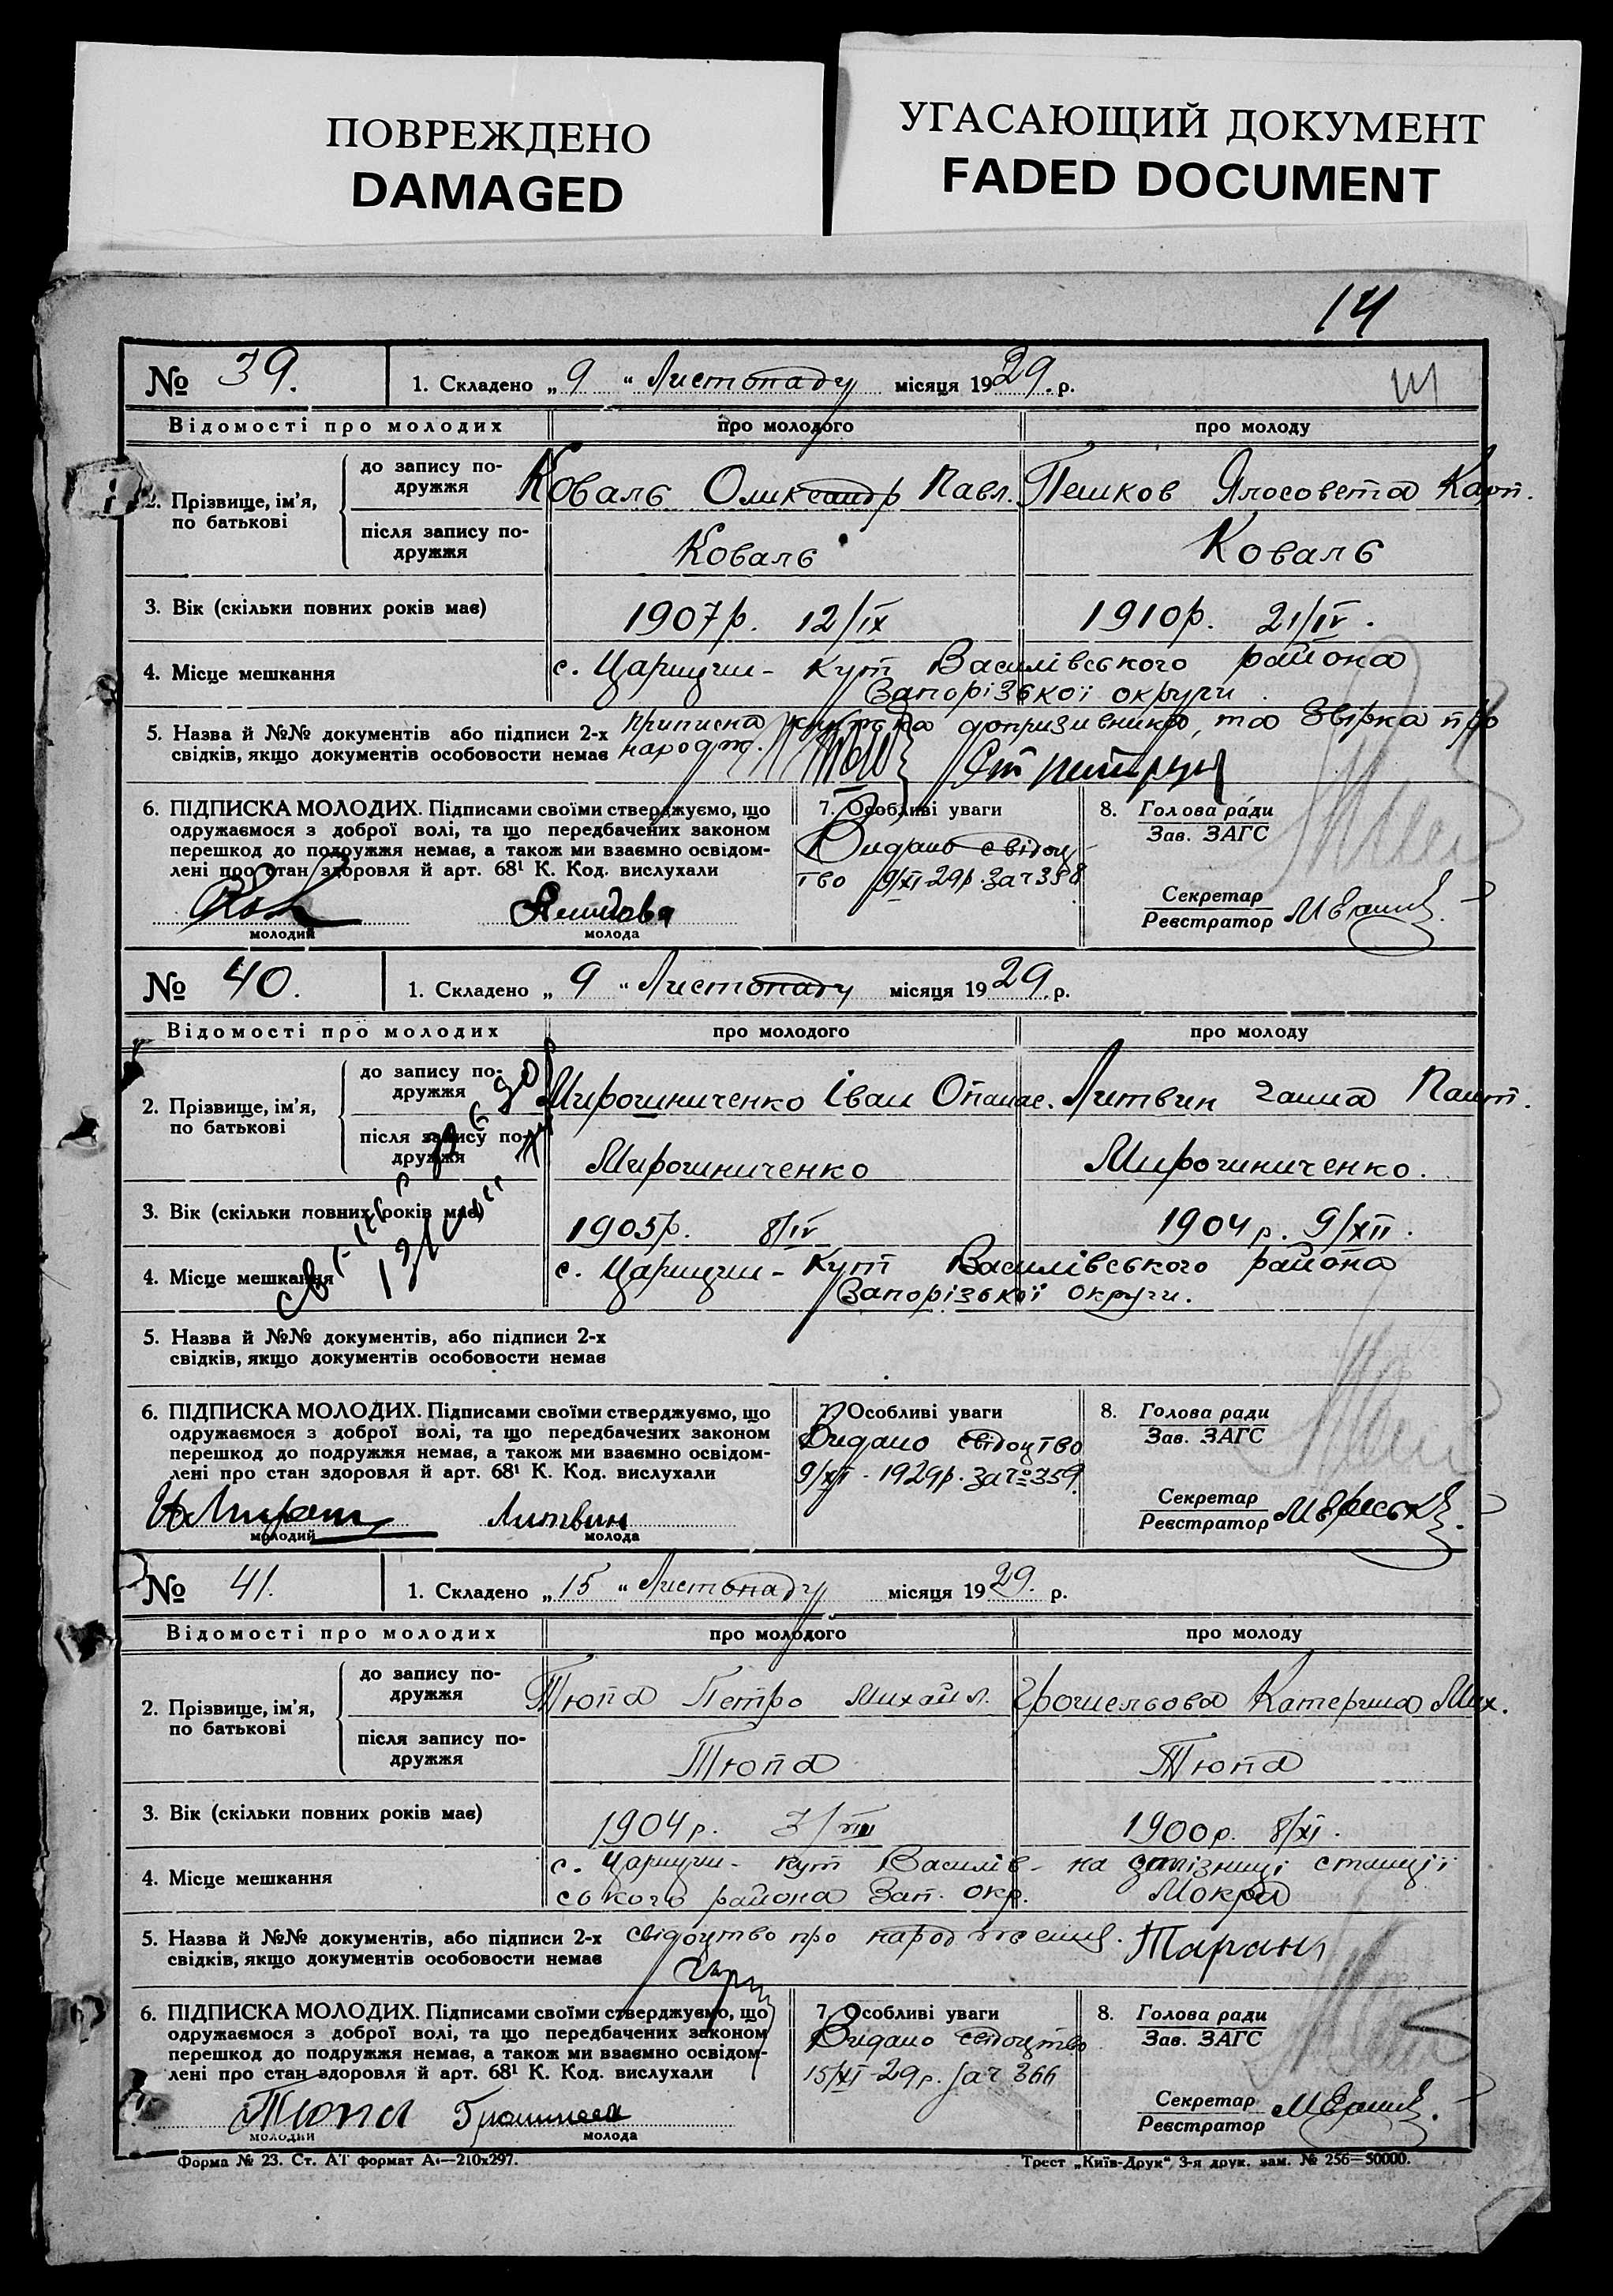 ПОВРЕЖДЕНО
DAMAGED
УГАСАЮЩИЙ ДОКУМЕНТ
FADED DOCUMENT
14
№ 39. 1. Складено „ 9 “ Листопаду місяця 1929. р.
Відомості про молодих про молодого про молоду
2. Прізвище, ім’я, по батькові
до запису по-дружжя Коваль Олександр Павл. Пешков Ялосовета Карп.
після запису по-дружжя Коваль Коваль
3. Вік (скільки повних років має) 1907 р. 12/IX 1910 р. 21/IV.
4. Місце мешкання с. Царицин-Кут Василівського района
Запорізької округи
5. Назва й №№ документів або підписи 2-х приписна допризивника, та Звірка про
свідків, якщо документів особовости немає народж.
6. ПІДПИСКА МОЛОДИХ. Підписами своїми стверджуємо, що
одружаємося з доброї волі, та що передбачених законом
перешкод до подружжя немає, а також ми взаємно освідом-
лені про стан здоровля й арт. 68¹ К. Код. вислухали
молодий молода
7. Особливі уваги
Видано свідоц
тво 9/XI-29р. за ч 358
8. Голова ради
Зав. ЗАГС
Секретар
Реєстратор
№ 40. 1. Складено „ 9 “ Листопаду місяця 1929. р.
Відомості про молодих про молодого про молоду
2. Прізвище, ім’я, по батькові
до запису по-дружжя Мирошниченко Іван Опанас. Литвин Ганна Пант.
після запису по-дружжя Мирошниченко Мирошниченко.
3. Вік (скільки повних років має) 1905р. 8/IV 1904 р. 9/XII.
4. Місце мешкання с. Царицин-Кут Василівського района
Запорізької округи.
5. Назва й №№ документів, або підписи 2-х
свідків, якщо документів особовости немає
6. ПІДПИСКА МОЛОДИХ. Підписами своїми стверджуємо, що
одружаємося з доброї волі, та що передбачених законом
перешкод до подружжя немає, а також ми взаємно освідом-
лені про стан здоровля й арт. 68¹ К. Код. вислухали
Литвин
молодий молода
7. Особливі уваги
Видано свідоцтво
9/XI-1929р. за ч 359.
8. Голова ради
Зав. ЗАГС
Секретар
Реєстратор
№ 41. 1. Складено „ 15 “ Листопаду місяця 1929. р.
Відомості про молодих про молодого про молоду
2. Прізвище, ім’я, по батькові
до запису по-дружжя Тюпа Петро Михайл. Грошельова Катерина Мих.
після запису по-дружжя Тюпа Тюпа
3. Вік (скільки повних років має) 1904 р. 3/VIII 1900 р. 8/XI.
4. Місце мешкання с. Царицин-Кут Василів- на залізниці станції
ського района Зап. окр. Мокра
5. Назва й №№ документів, або підписи 2-х свідоцтво про народження.
свідків, якщо документів особовости немає
6. ПІДПИСКА МОЛОДИХ. Підписами своїми стверджуємо, що
одружаємося з доброї волі, та що передбачених законом
перешкод до подружжя немає, а також ми взаємно освідом-
лені про стан здоровля й арт. 68¹ К. Код. вислухали
Тюпа
молодий молода
7. Особливі уваги
Видано свідоцтво
15/XI-29р. за ч 366
8. Голова ради
Зав. ЗАГС
Секретар
Реєстратор
Форма № 23. Ст. АТ формат А4—210х297. Трест „Київ-Друк“ 3-я друк. зам. № 256—50000.